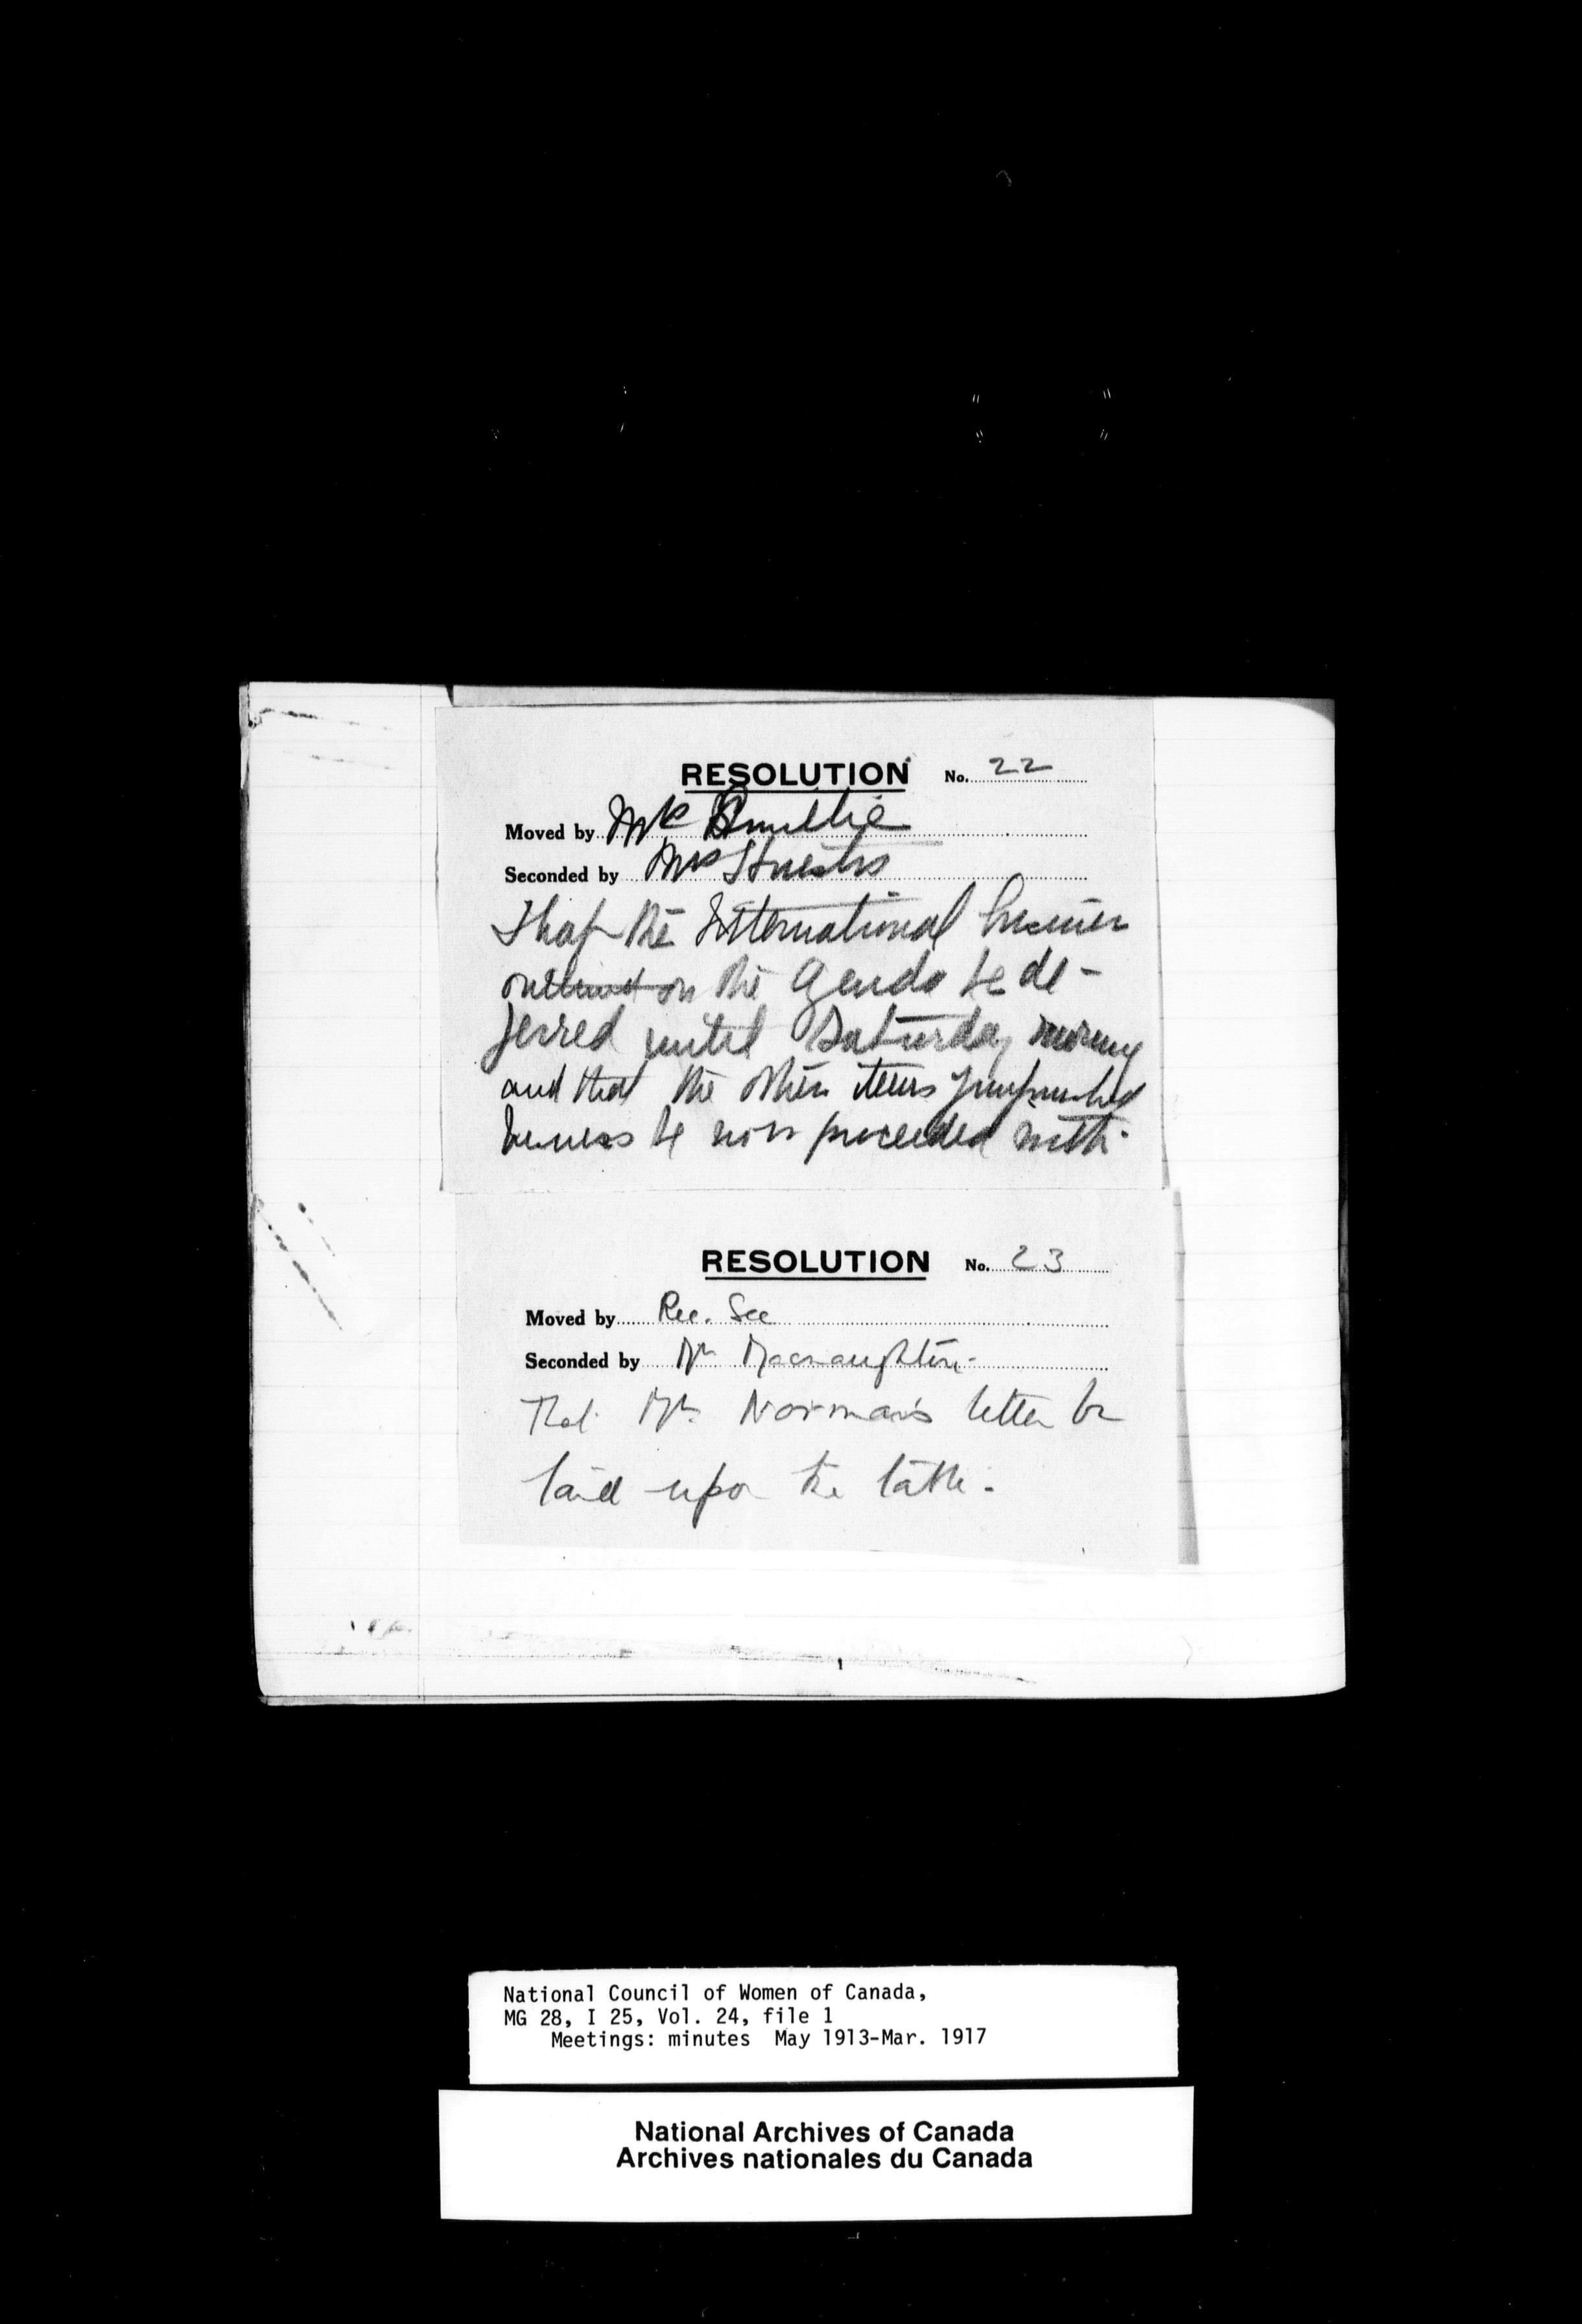 RESOLUTION No. 22
Moved by Mrs Smillie
Seconded by Mrs Huestis
That the International business
on the Agenda be de-
ferred until Saturday morning
and that the other items
business be now proceeded with.
RESOLUTION No. 23
Moved by Rec. Sec
Seconded by Mrs Macnaughton.
That Mrs. Norman's letter be
laid upon the table.
National Council of Women of Canada,
MG 28, I 25, Vol. 24, file 1
Meetings: minutes May 1913-Mar. 1917
National Archives of Canada
Archives nationales du Canada